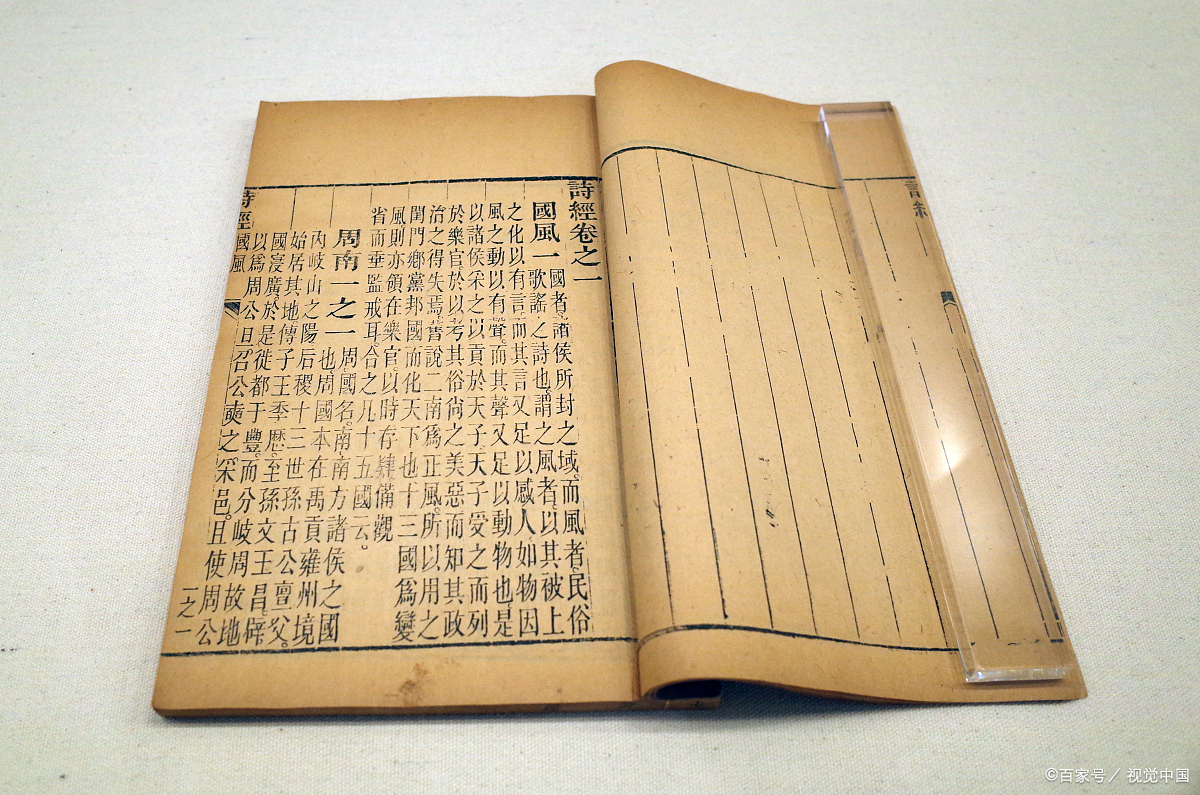 詩經卷之一
國風一 國者諸侯所封之域。而風者民俗
歌謠之詩也。謂之風者。以其被上
之化以有言。而其言又足以感人。如物因
風之動以有聲。而其聲又足以動物也。是
以諸侯采之以貢於天子。天子受之而列
於樂官。於以考其俗尚之美惡。而知其政
治之得失焉。舊說二南爲正風。所以用之
閨門鄉黨邦國而化天下也。十三國爲變
風。則亦領在樂官。以時存肄。備觀
省而垂監戒耳。合之凡十五國云。
周南一之一 周。國名。南。南方諸侯之國
也。周國本在禹貢雍州境
內岐山之陽。后稷十三世孫古公亶父。
始居其地。傳子王季歷。至孫文王昌。辟
國寖廣。於是徙都于豐。而分岐周故地
以爲周公旦。召公奭之采邑。且使周公
詩經 國風 一之一
©百家号／视觉中国